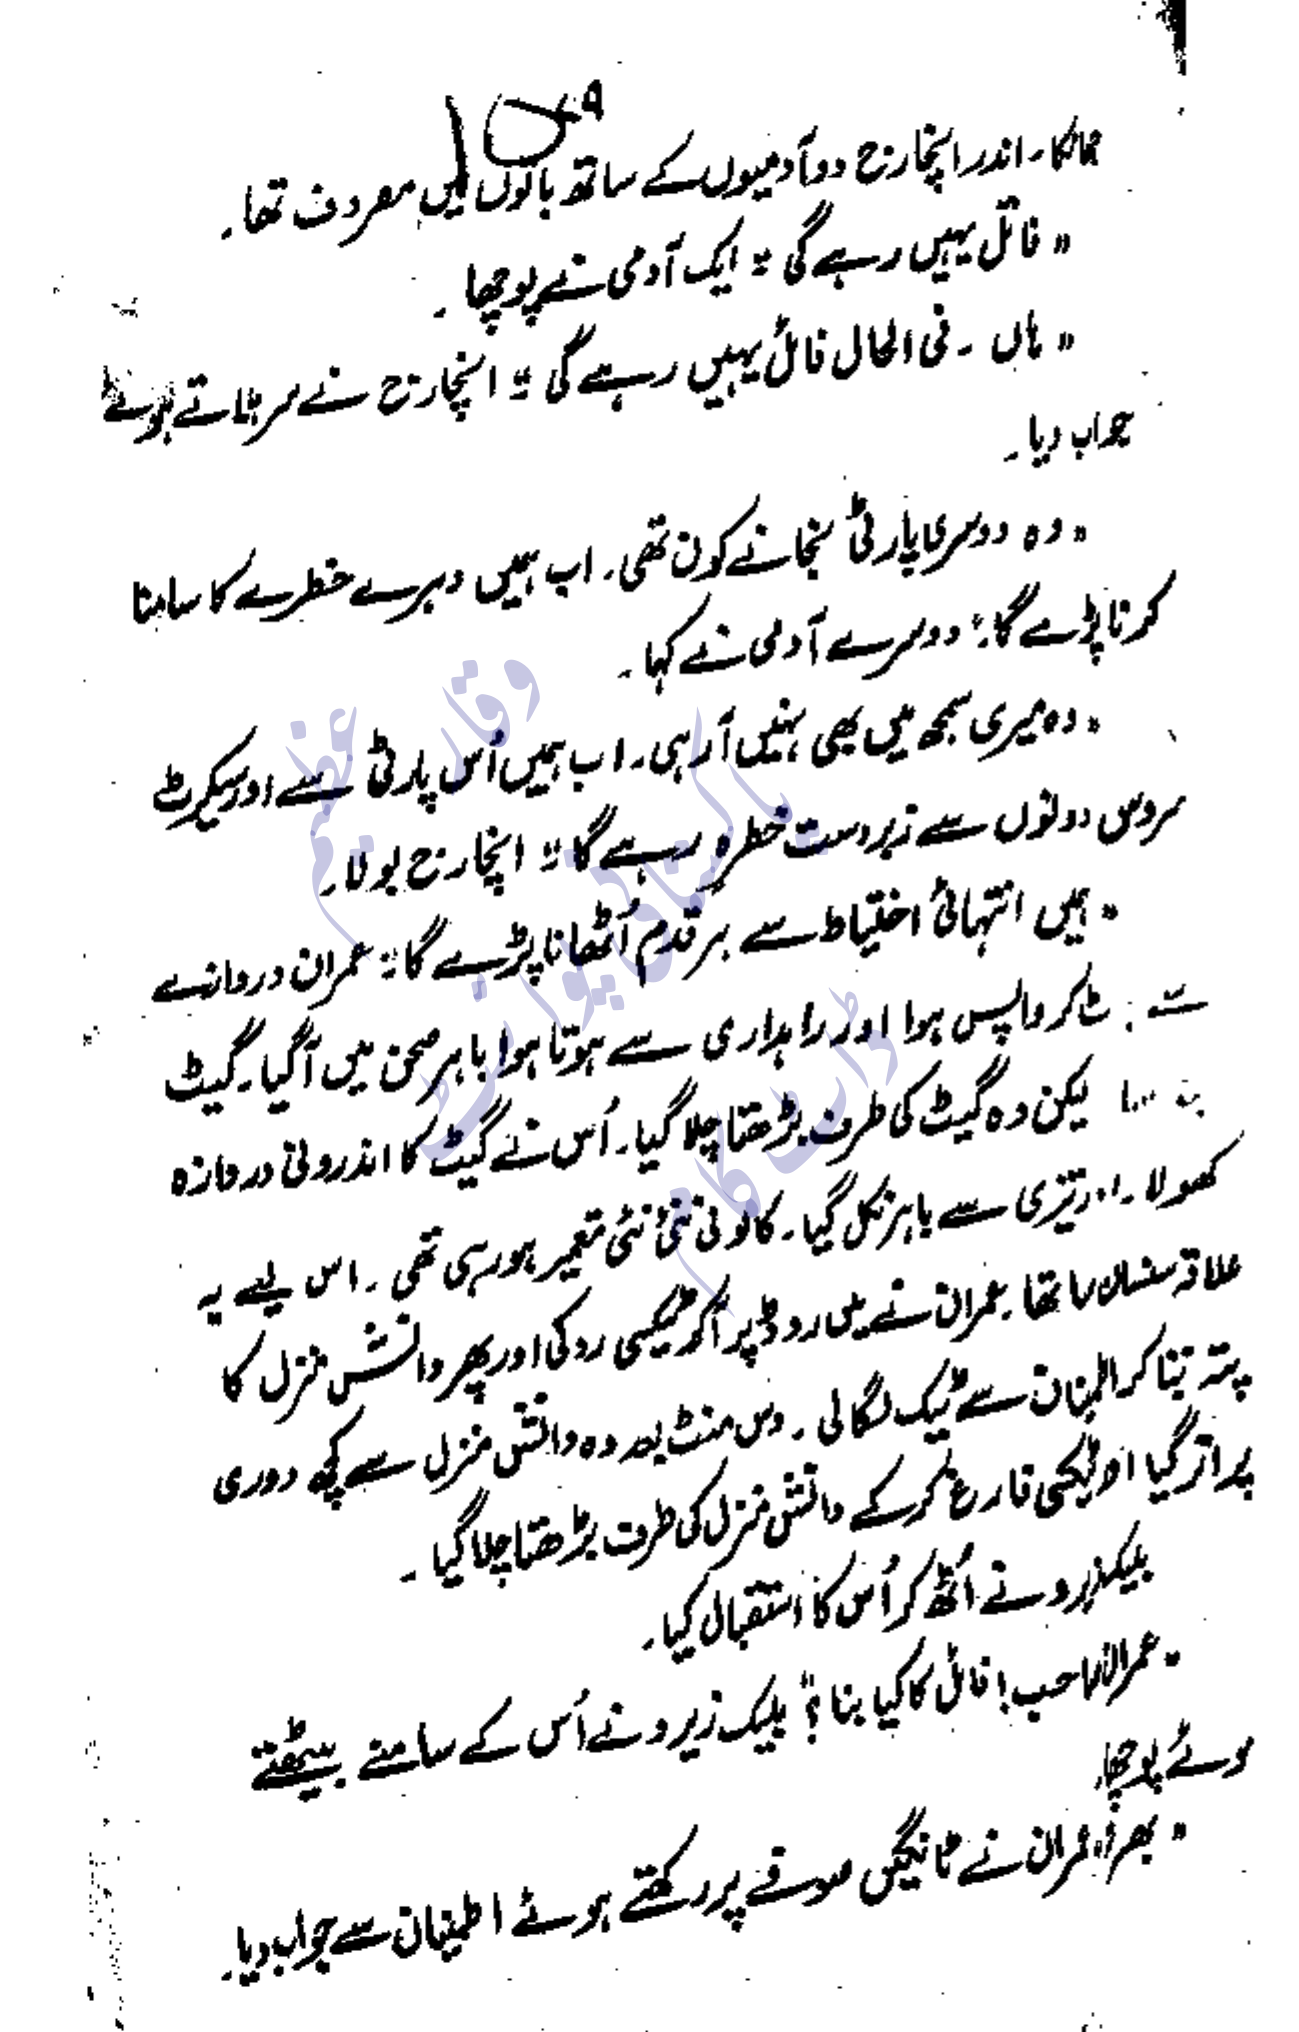 جھانکا۔ اندر انچارج دو آدمیوں کے ساتھ باتوں میں مصروف تھا۔
" فائل یہیں رہے گی " ایک آدمی نے پوچھا ۔
" ہاں ۔ فی الحال فائل یہیں رہے گی " انچارج نے سر ہلاتے ہوئے
جواب دیا ۔
" وہ دوسری پارٹی نجانے کون تھی ۔ اب ہمیں دہرے خطرے کا سامنا
کرنا پڑے گا " دوسرے آدمی نے کہا ۔
" وہ میری سمجھ میں بھی نہیں آ رہی ۔ اب ہمیں اُس پارٹی سے اور سیکرٹ
سروس دونوں سے زبردست خطرہ رہے گا " انچارج بولا ۔
" ہمیں انتہائی احتیاط سے ہر قدم اُٹھانا پڑے گا " عمران دروازے
کر واپس ہوا اور راہداری سے ہوتا ہوا باہر صحن میں آ گیا ۔ گیٹ
لیکن وہ گیٹ کی طرف بڑھتا چلا گیا ۔ اُس نے گیٹ کا اندرونی دروازہ
کھولا ۔ اور تیزی سے باہر نکل گیا ۔ کالونی نئی نئی تعمیر ہو رہی تھی ۔ اس لیے یہ
علاقہ سنسان سا تھا ۔ عمران نے مین روڈ پر آ کر ٹیکسی روکی اور پھر دانش منزل کا
پتہ بتا کر اطمینان سے ٹیک لگا لی ۔ دس منٹ بعد وہ دانش منزل سے کچھ دوری
پر اتر گیا اور ٹیکسی فارغ کر کے دانش منزل کی طرف بڑھتا چلا گیا ۔
بلیک زیرو نے اُٹھ کر اُس کا استقبال کیا ۔
" عمران صاحب ! فائل کا کیا بنا ؟ " بلیک زیرو نے اُس کے سامنے بیٹھتے
ہوئے پوچھا ۔
عمران نے ٹانگیں صوفے پر رکھتے ہوئے اطمینان سے جواب دیا ۔
وقار عظیم
پاکستانی پوائنٹ
ڈاٹ کام